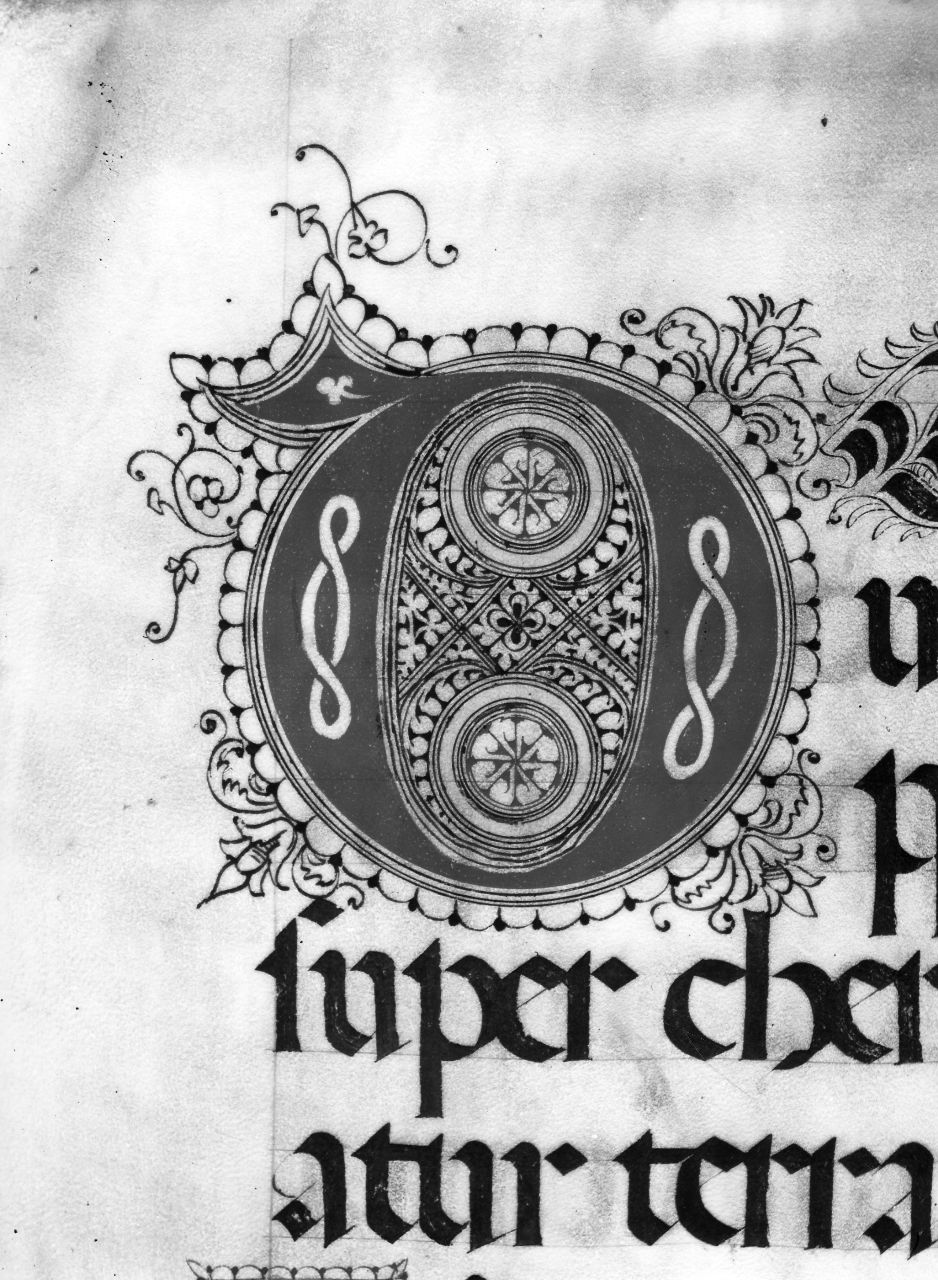 D
u
p
super cher
atur terra